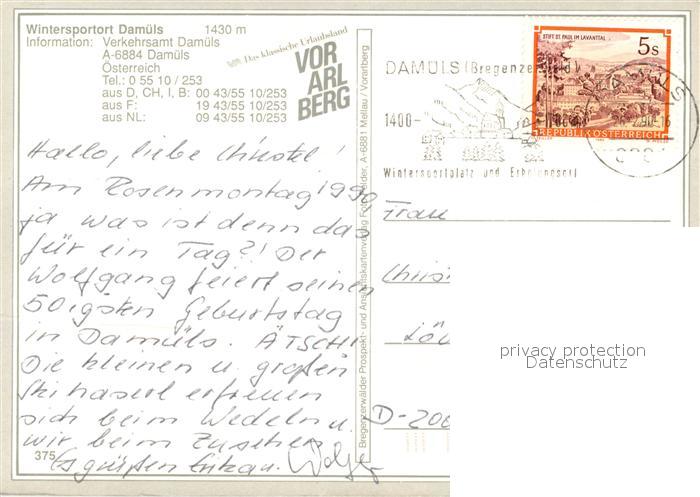 Wintersportort Damüls 1430 m
Information: Verkehrsamt Damüls
A-6884 Damüls
Österreich
Tel.: 0 55 10 / 253
aus D, CH, I, B: 00 43/55 10/253
aus F: 19 43/55 10/253
aus NL: 09 43/55 10/253
Das klassische Urlaubsland
VOR
ARL
BERG
Hallo, liebe Christel!
Am Rosenmontag 1990,
ja was ist denn das
für ein Tag?! Der
Wolfgang feiert seinen
50igsten Geburtstag
in Damüls. ÄTSCH!
Die kleinen u. großen
Skihaserl erfreuen
sich beim Wedeln u.
wir beim Zusehen
Es grüßen
375
Bregenzerwälder Prospekt- und Ansichtskartenverlag A-6881 Mellau / Vorarlberg
STIFT ST. PAUL IM LAVANTTAL
5 s
REPUBLIK ÖSTERREICH
DAMÜLS (Bregenze
1400-
Wintersportplatz und Erholungsort
Frau
D-200
privacy protection
Datenschutz